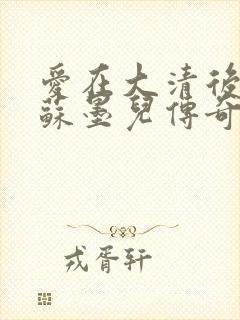 愛在大清後
蘇墨兒傳奇
戎胥軒